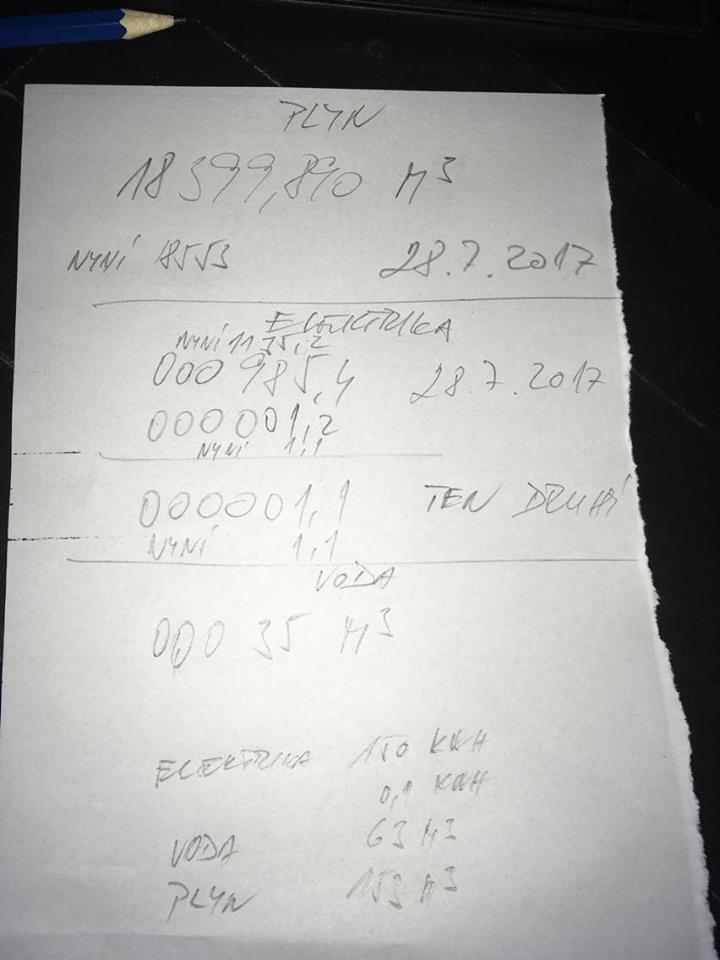 PLYN
18399,890 M³
NYNÍ 18553 28.7.2017
ELEKTRIKA
NYNÍ 1135,2
000 985,4 28.7.2017
000001,2
NYNÍ 1,1
000001,1 TEN DRUHÝ
NYNÍ 1,1
VODA
000 35 M³
ELEKTRIKA 150 KWH
0,1 KWH
VODA 63 M³
PLYN 153 M³